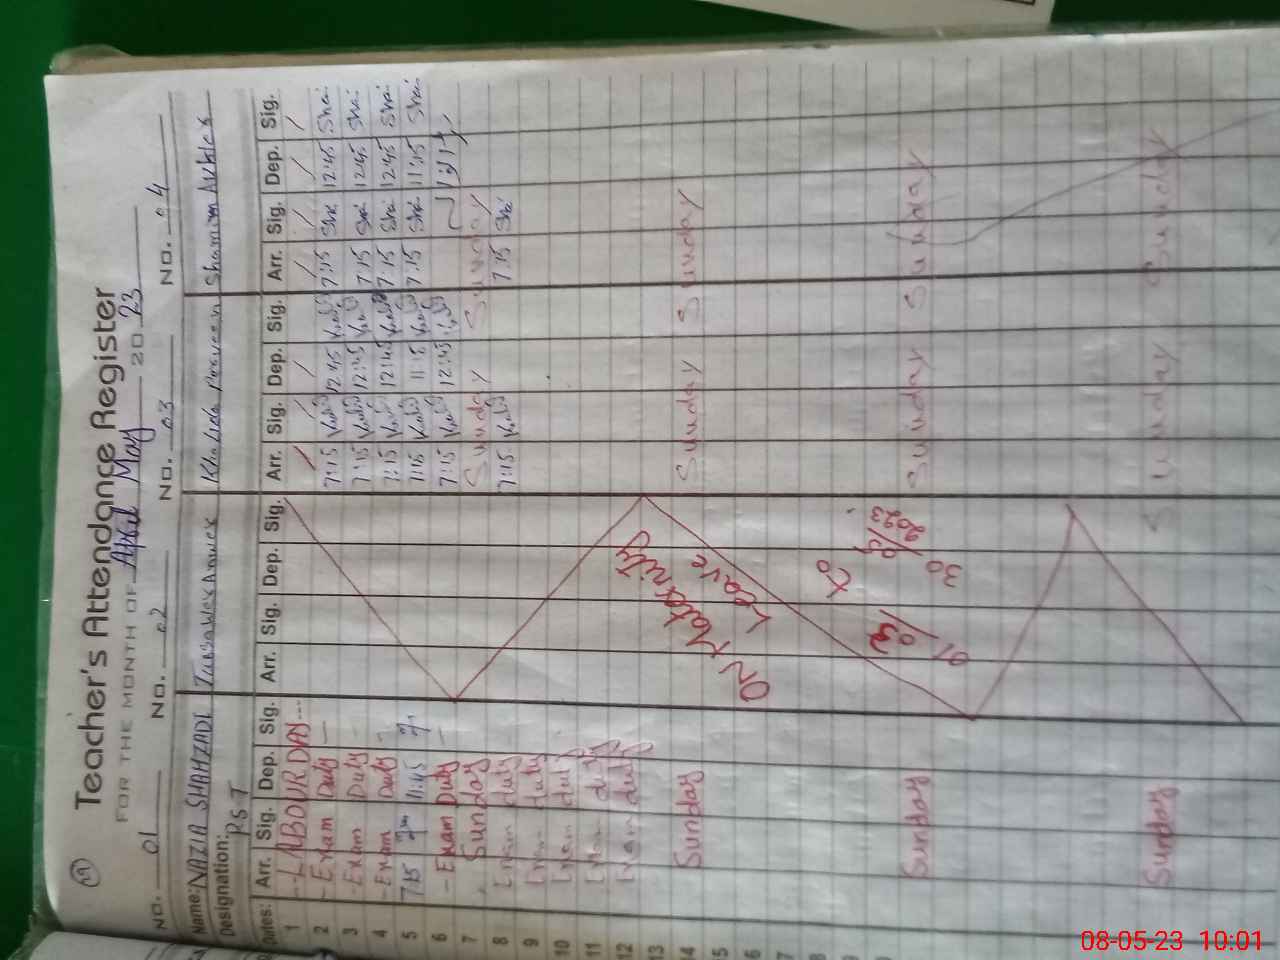 Teacher's Attendance Register
FOR THE MONTH OF April May 2023
NO. 01 NO. 02 NO. 03 NO. 04
Name: NAZIA SHAHZADI Tassawar Anwer Khalida Parveen Shamim Akhter
Designation: PST
Dates: Arr. Sig. Dep. Sig. Arr. Sig. Dep. Sig. Arr. Sig. Dep. Sig. Arr. Sig. Dep. Sig.
1 LABOUR DAY
2 Exam Duty 7:15 12:45 7:15 Sha. 12:45 Sha.
3 Exam Duty 7:15 12:45 7:15 Sha. 12:45 Sha.
4 Exam Duty 7:15 12:45 7:15 Sha. 12:45 Sha.
5 7:15 11:45 7:15 11:15 7:15 Sha. 11:15 Sha.
6 Exam Duty 7:15 12:45
7 Sunday Sunday Sunday
8 Exam duty 7:15 7:15 Sha.
9 Exam duty
10 Exam duty
11 Exam duty
12 Exam duty
13
14 Sunday Sunday Sunday
15
16
17
18
On Maternity Leave
01/03 to 30/05/2023
Sunday Sunday Sunday
Sunday Sunday Sunday
08-05-23 10:01